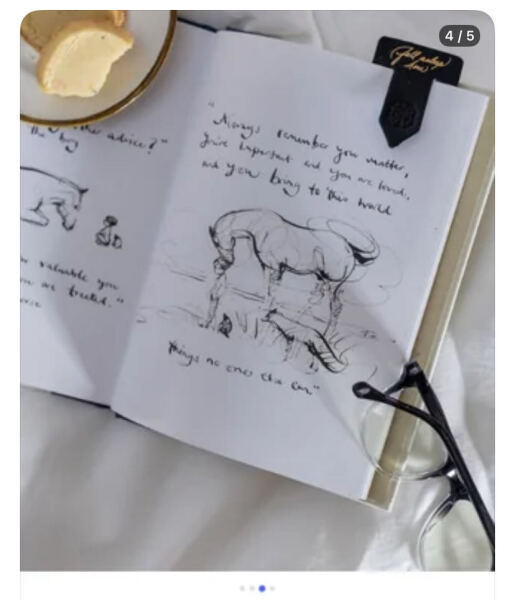 4 / 5
Fell asleep
here
other advice?"
the boy
valuable you
are treated."
"Always remember you matter,
you're important and you are loved,
and you bring to this world
things no one else can."